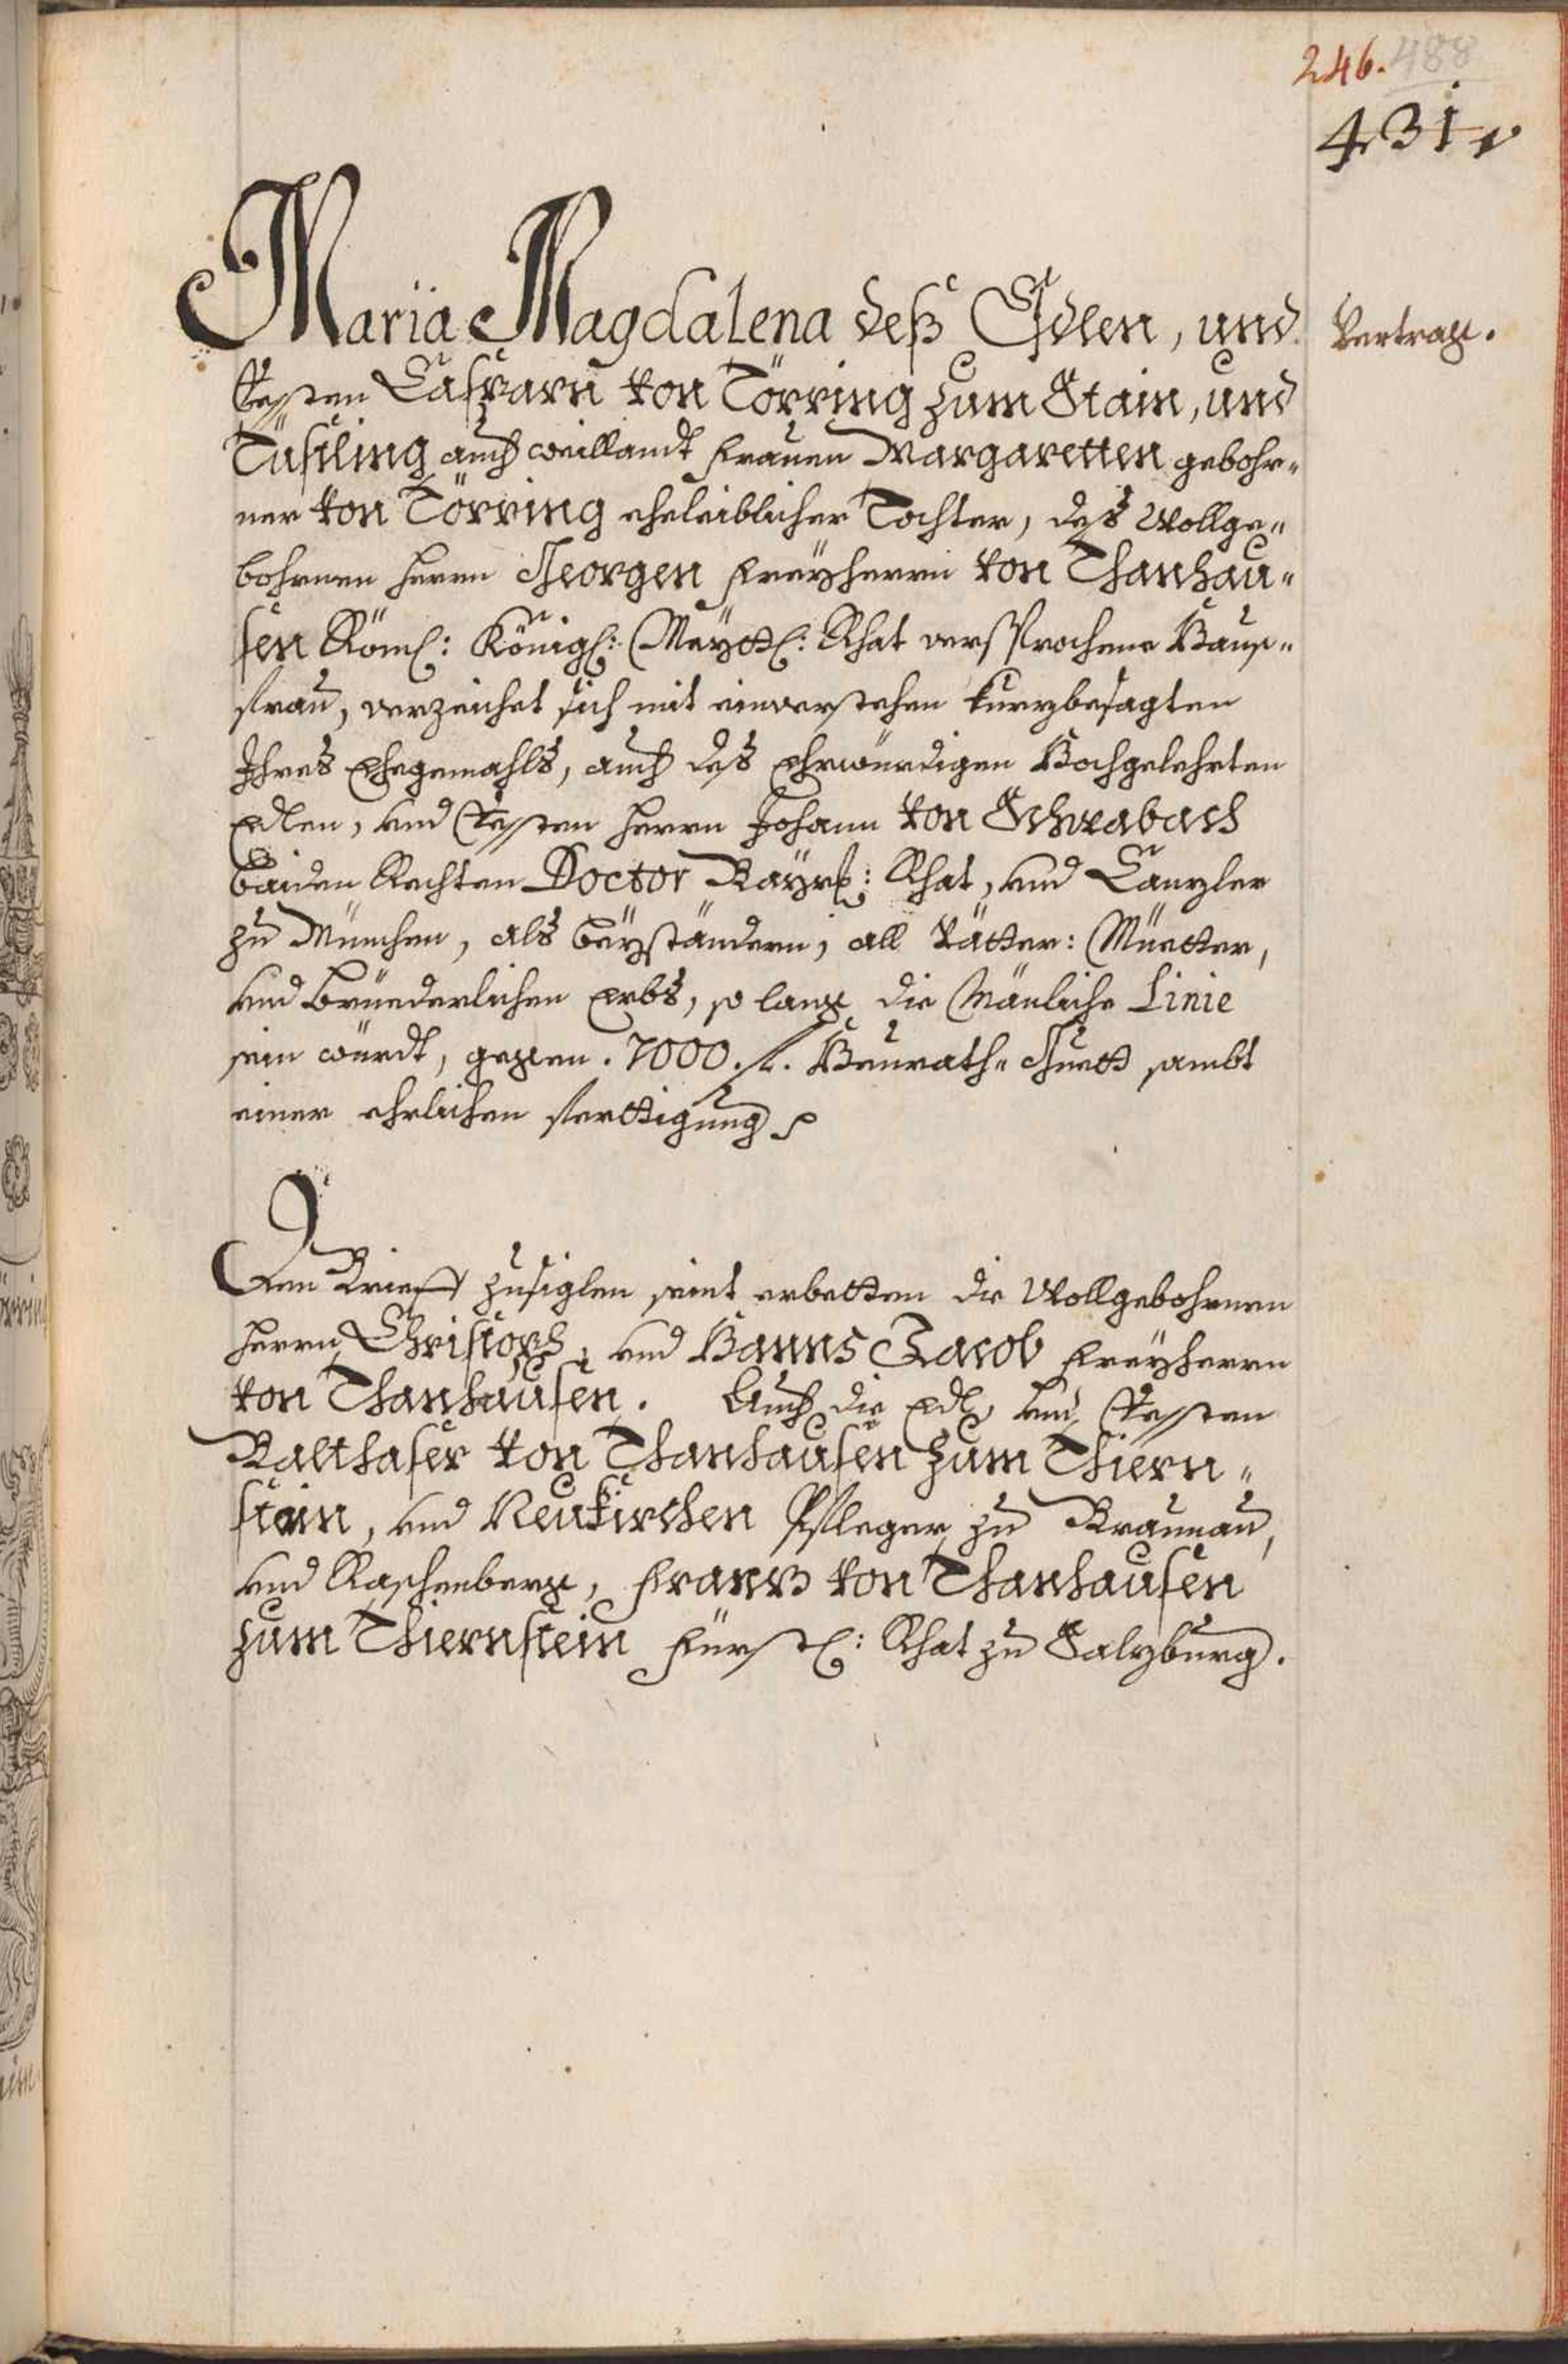 246. 488
431
Maria Magdalena deß Edlen, und
Vertrag.
Vessten Casparn von Törring zum Stain, und
Tüsling auch weillandt Frauen Margaretten gebohr„
ner von Törring eheleiblicher Tochter, deß Wollge„
bohrnen Herrn Georgen Freyherrn von Thanhau„
sen Röml: Königl: Maytt: Rhat versprochene Haus„
frau, verzeichet sich mit einverstehen kurzbesagten
Ihres Ehegemahls, auch deß Ehrwürdigen Hochgelehrten
Edlen, und Vessten Herrn Johann von Schwabach
baiden Rechten Doctor Bayrl: Rhat, und Canzler
zu München, als beyständern, all Vätter: Muetter,
und Brüederlichen Erbs, so lang die Mänliche Linie
sein würdt, gegen . 7000. fl. Heurath„ Guett sambt
einer ehrlichen Ferttigung
Den Brieff zusiglen seint erbetten die Wollgebohrnen
Herrn Christoph, und Hanns Jacob Freyherrn
von Thanhausen. Auch die Edl, und Vessten
Balthaser von Thanhausen zum Thiern„
stain, und Neukirchen Pfleger zu Braunau,
und Raschenberg, Franz von Thanhausen
zum Thiernstein Fürstl: Rhat zu Salzburg.